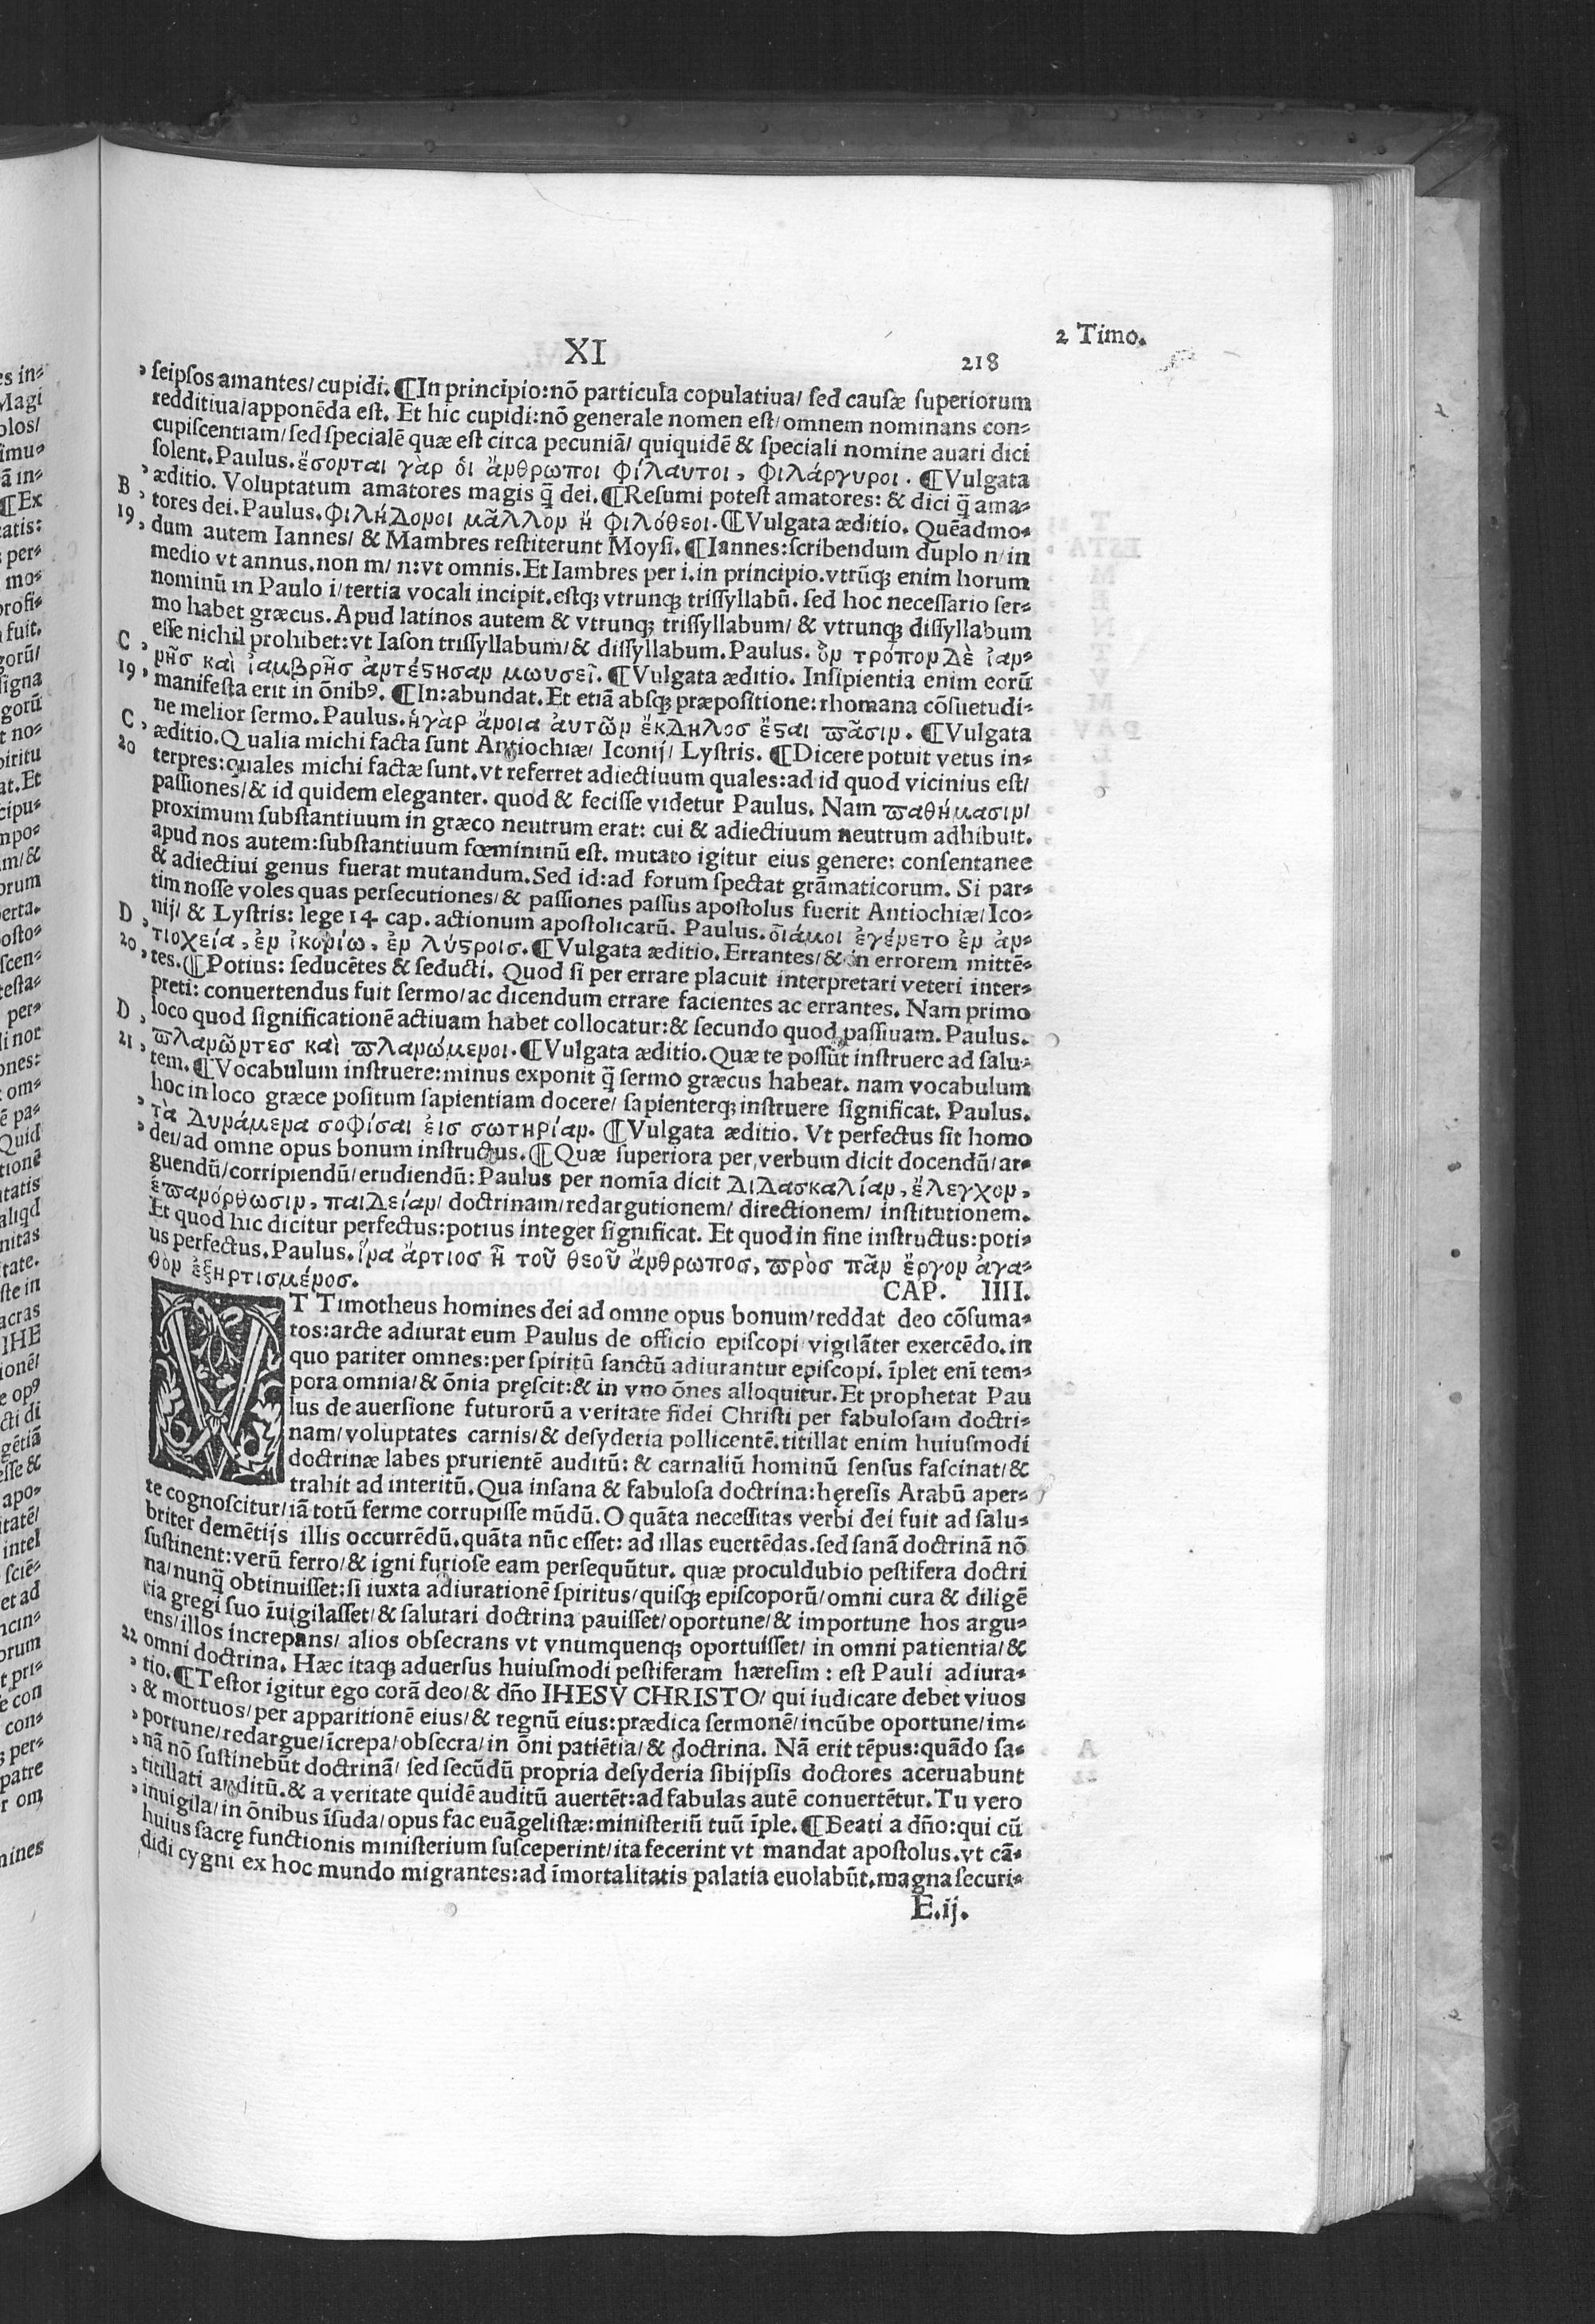 XI
218
2 Timo.
, seipsos amantes/ cupidi. ¶In principio: nõ particula copulatiua/ sed causæ superiorum
redditiua/ apponẽda est. Et hic cupidi: nõ generale nomen est/ omnem nominans con⸗
cupiscentiam/ sed specialẽ quæ est circa pecuniã/ quiquidẽ & speciali nomine auari dici
solent. Paulus. ἔσονται γὰρ ὁι ἄνθρωποι φίλαυτοι, φιλάργυροι. ¶Vulgata
B , æditio. Voluptatum amatores magis q̃ dei. ¶Resumi potest amatores: & dici q̃ ama⸗
19 , tores dei. Paulus. φιλήδονοι μᾶλλον ἤ φιλόθεοι. ¶Vulgata æditio. Quẽadmo⸗
dum autem Iannes/ & Mambres restiterunt Moysi. ¶Iannes: scribendum duplo n/ in
medio vt annus. non m/ n: vt omnis. Et Iambres per i. in principio. vtrũq; enim horum
nominũ in Paulo i/ tertia vocali incipit. estq; vtrunq; trissyllabũ. sed hoc necessario ser⸗
mo habet græcus. Apud latinos autem & vtrunq; trissyllabum/ & vtrunq; dissyllabum
esse nichil prohibet: vt Iason trissyllabum/ & dissyllabum. Paulus. ὃν τρόπον δὲ ἰαν⸗
C , νῆσ καὶ ἰαμβρῆσ ἀντέϛησαν μωυσεῖ. ¶Vulgata æditio. Insipientia enim eorũ
19 , manifesta erit in õnibꝰ. ¶In: abundat. Et etiã absq; præpositione: rhomana cõsuetudi⸗
ne melior sermo. Paulus. ἡγὰρ ἄνοια ἀυτῶν ἔκδηλοσ ἔϛαι πᾶσιν. ¶Vulgata
C , æditio. Qualia michi facta sunt Antiochiæ/ Iconij/ Lystris. ¶Dicere potuit vetus in⸗
20 terpres: quales michi factæ sunt. vt referret adiectiuum quales: ad id quod vicinius est/
passiones/ & id quidem eleganter. quod & fecisse videtur Paulus. Nam παθήμασιν/
proximum substantiuum in græco neutrum erat: cui & adiectiuum neutrum adhibuit.
apud nos autem: substantiuum fœmininũ est. mutato igitur eius genere: consentanee
& adiectiui genus fuerat mutandum. Sed id: ad forum spectat grãmaticorum. Si par⸗
tim nosse voles quas persecutiones/ & passiones passus apostolus fuerit Antiochiæ/ Ico⸗
nij/ & Lystris: lege 14 cap. actionum apostolicarũ. Paulus. οἷάμοι ἐγένετο ἐν ἀν⸗
D , τιοχεία, ἐν ἰκονίω, ἐν λύϛροισ. ¶Vulgata æditio. Errantes/ & in errorem mittẽ⸗
20 , tes. ¶Potius: seducẽtes & seducti. Quod si per errare placuit interpretari veteri inter⸗
preti: conuertendus fuit sermo/ ac dicendum errare facientes ac errantes. Nam primo
loco quod significationẽ actiuam habet collocatur: & secundo quod passiuam. Paulus.
D , πλανῶντεσ καὶ πλανώμενοι. ¶Vulgata æditio. Quæ te possũt instruere ad salu⸗
21 , tem. ¶Vocabulum instruere: minus exponit q̃ sermo græcus habeat. nam vocabulum
hoc in loco græce positum sapientiam docere/ sapienterq; instruere significat. Paulus.
, τὰ δυνάμενα σοφίσαι ἐισ σωτηρίαν. ¶Vulgata æditio. Vt perfectus sit homo
, dei/ ad omne opus bonum instructus. ¶Quæ superiora per verbum dicit docendũ/ ar⸗
guendũ/ corripiendũ/ erudiendũ: Paulus per nomĩa dicit διδασκαλίαν, ἔλεγχον,
ἐπανόρθωσιν, παιδείαν/ doctrinam/ redargutionem/ directionem/ institutionem.
Et quod hic dicitur perfectus: potius integer significat. Et quod in fine instructus: poti⸗
us perfectus. Paulus. ἵνα ἄρτιοσ ἦ τοῦ θεοῦ ἄνθρωποσ, πρὸσ πᾶν ἔργον ἀγα⸗
θὸν ἐξηρτισμένοσ.
CAP. IIII.
VT Timotheus homines dei ad omne opus bonum/ reddat deo cõsuma⸗
tos: arcte adiurat eum Paulus de officio episcopi vigilãter exercẽdo. in
quo pariter omnes: per spiritũ sanctũ adiurantur episcopi. ĩplet enĩ tem⸗
pora omnia/ & õnia pręscit: & in vno õnes alloquitur. Et prophetat Pau
lus de auersione futurorũ a veritate fidei Christi per fabulosam doctri⸗
nam/ voluptates carnis/ & desyderia pollicentẽ. titillat enim huiusmodi
doctrinæ labes prurientẽ auditũ: & carnaliũ hominũ sensus fascinat/ &
trahit ad interitũ. Qua insana & fabulosa doctrina: hęresis Arabũ aper⸗
te cognoscitur/ iã totũ ferme corrupisse mũdũ. O quãta necessitas verbi dei fuit ad salu⸗
briter demẽtijs illis occurrẽdũ. quãta nũc esset: ad illas euertẽdas. sed sanã doctrinã nõ
sustinent: verũ ferro/ & igni furiose eam persequũtur. quæ proculdubio pestifera doctri
na/ nunq̃ obtinuisset: si iuxta adiurationẽ spiritus/ quisq; episcoporũ/ omni cura & diligẽ
tia gregi suo ĩuigilasset/ & salutari doctrina pauisset/ oportune/ & importune hos argu⸗
ens/ illos increpans/ alios obsecrans vt vnumquenq; oportuisset/ in omni patientia/ &
22 omni doctrina. Hæc itaq; aduersus huiusmodi pestiferam hæresim: est Pauli adiura⸗
, tio. ¶Testor igitur ego corã deo/ & dño IHESV CHRISTO/ qui iudicare debet viuos
, & mortuos/ per apparitionẽ eius/ & regnũ eius: prædica sermonẽ/ incũbe oportune/ im⸗
, portune/ redargue/ ĩcrepa/ obsecra/ in õni patiẽtia/ & doctrina. Nã erit tẽpus: quãdo sa⸗
, nã nõ sustinebũt doctrinã/ sed secũdũ propria desyderia sibijpsis doctores aceruabunt
, titillati auditũ. & a veritate quidẽ auditũ auertẽt: ad fabulas autẽ conuertẽtur. Tu vero
, inuigila/ in õnibus ĩsuda/ opus fac euãgelistæ: ministeriũ tuũ ĩple. ¶Beati a dño: qui cũ
huius sacrę functionis ministerium susceperint/ ita fecerint vt mandat apostolus. vt cã⸗
didi cygni ex hoc mundo migrantes: ad ĩmortalitatis palatia euolabũt. magna securi⸗
E.ij.